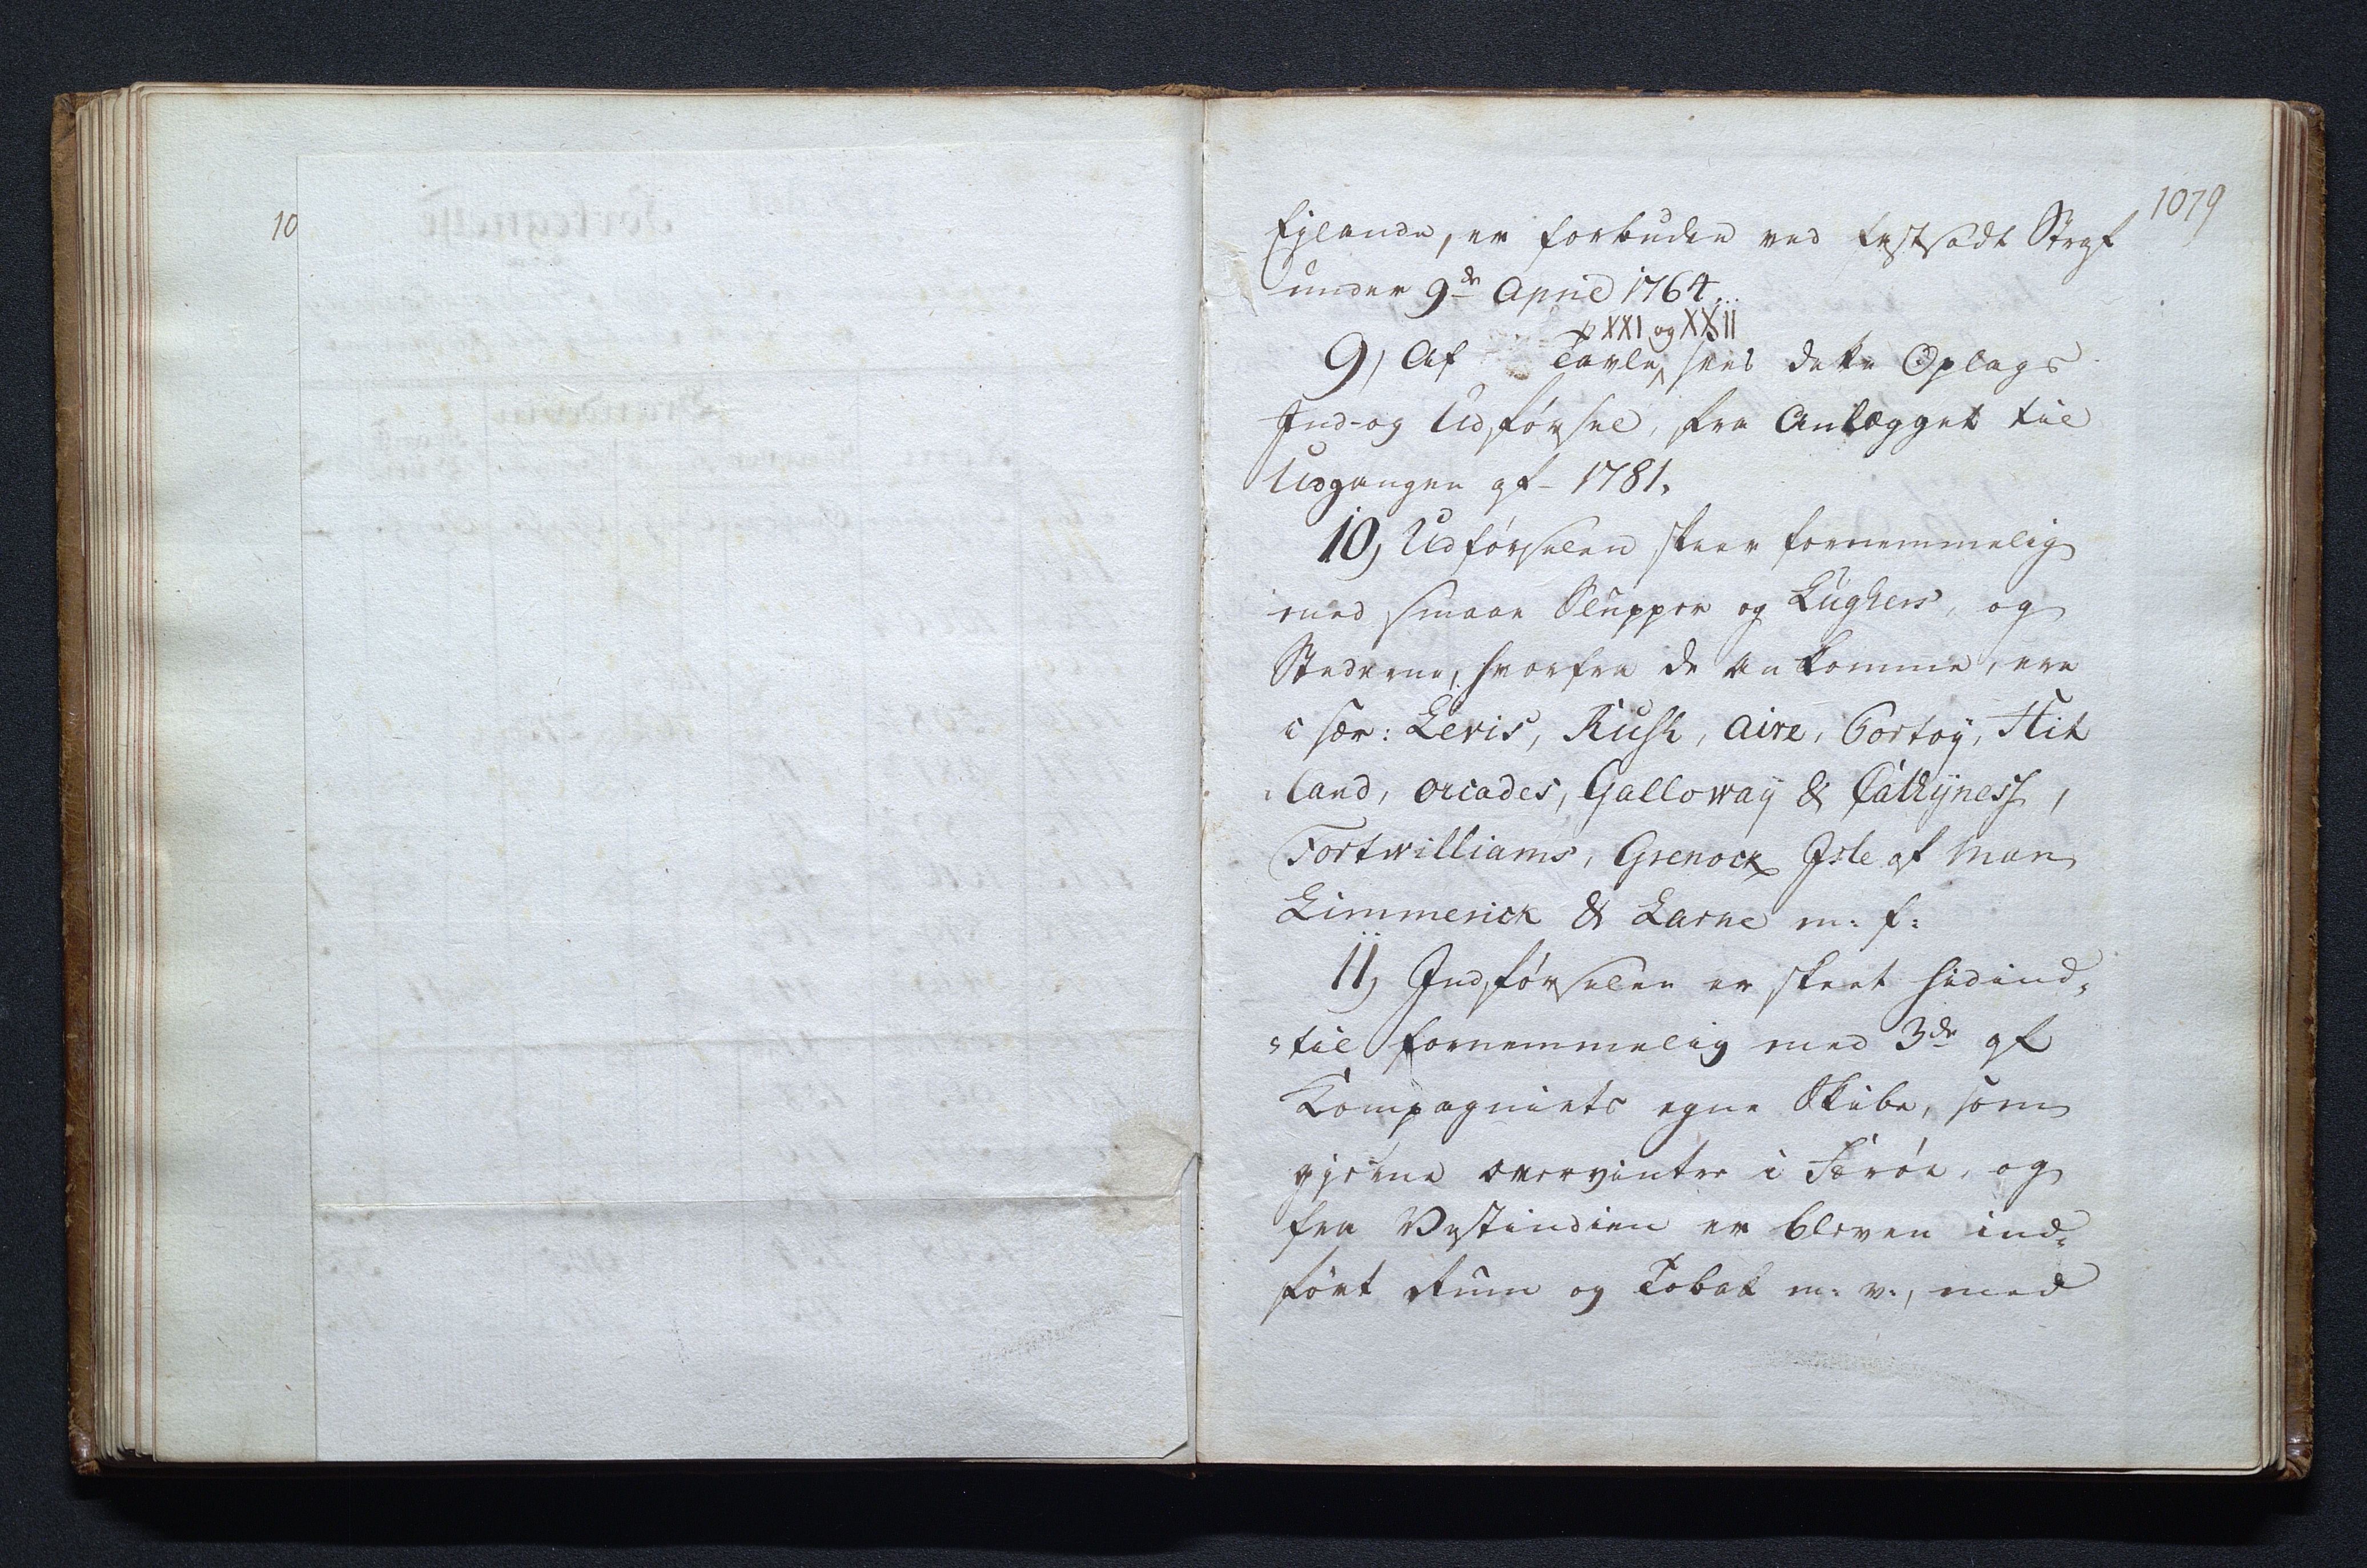 10
1079
Ejlande, er forbuden ved fastsadt Straf
under 9de April 1764.
XXI og XXII
9, Af Tavle sees dette Oplags
Ind- og Udførsel, fra Anlægget til
Udgangen af 1781.
10, Udførselen skeer fornemmelig
med smaae Slupper og Lughers, og
Stederne, hvorfra de ankomme, ere
i sær: Levis, Rush, Aire, Gortoy, Hit
land, Orcades, Galloway & Cathyness,
Fortwilliams, Grenock Isle of Man
Limmerick & Larne m: f:
11, Indførselen er skeet hidind-
-til fornemmelig med 3de af
Kompagniets egne Skibe, som
gjerne overvintre i Færöe, og
fra Vestindien er bleven ind-
ført Rum og Tobak m: v:, med